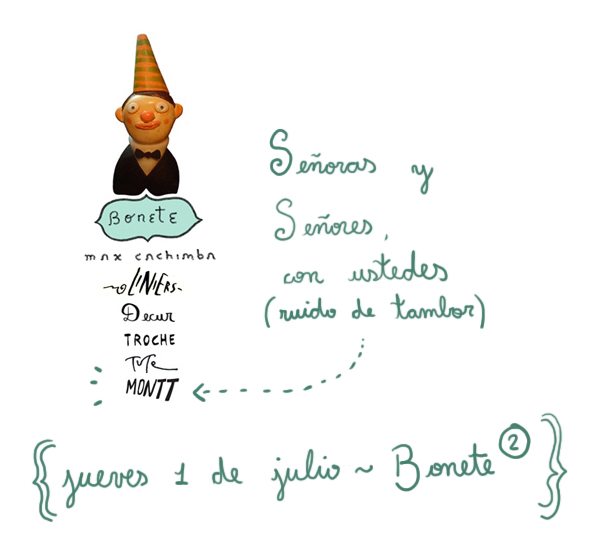 BONETE
max cachimba
LINIERS
Decur
TROCHE
TUTE
MONTT
Señoras y
Señores,
con ustedes
(ruido de tambor)
{jueves 1 de julio ~ Bonete 2}